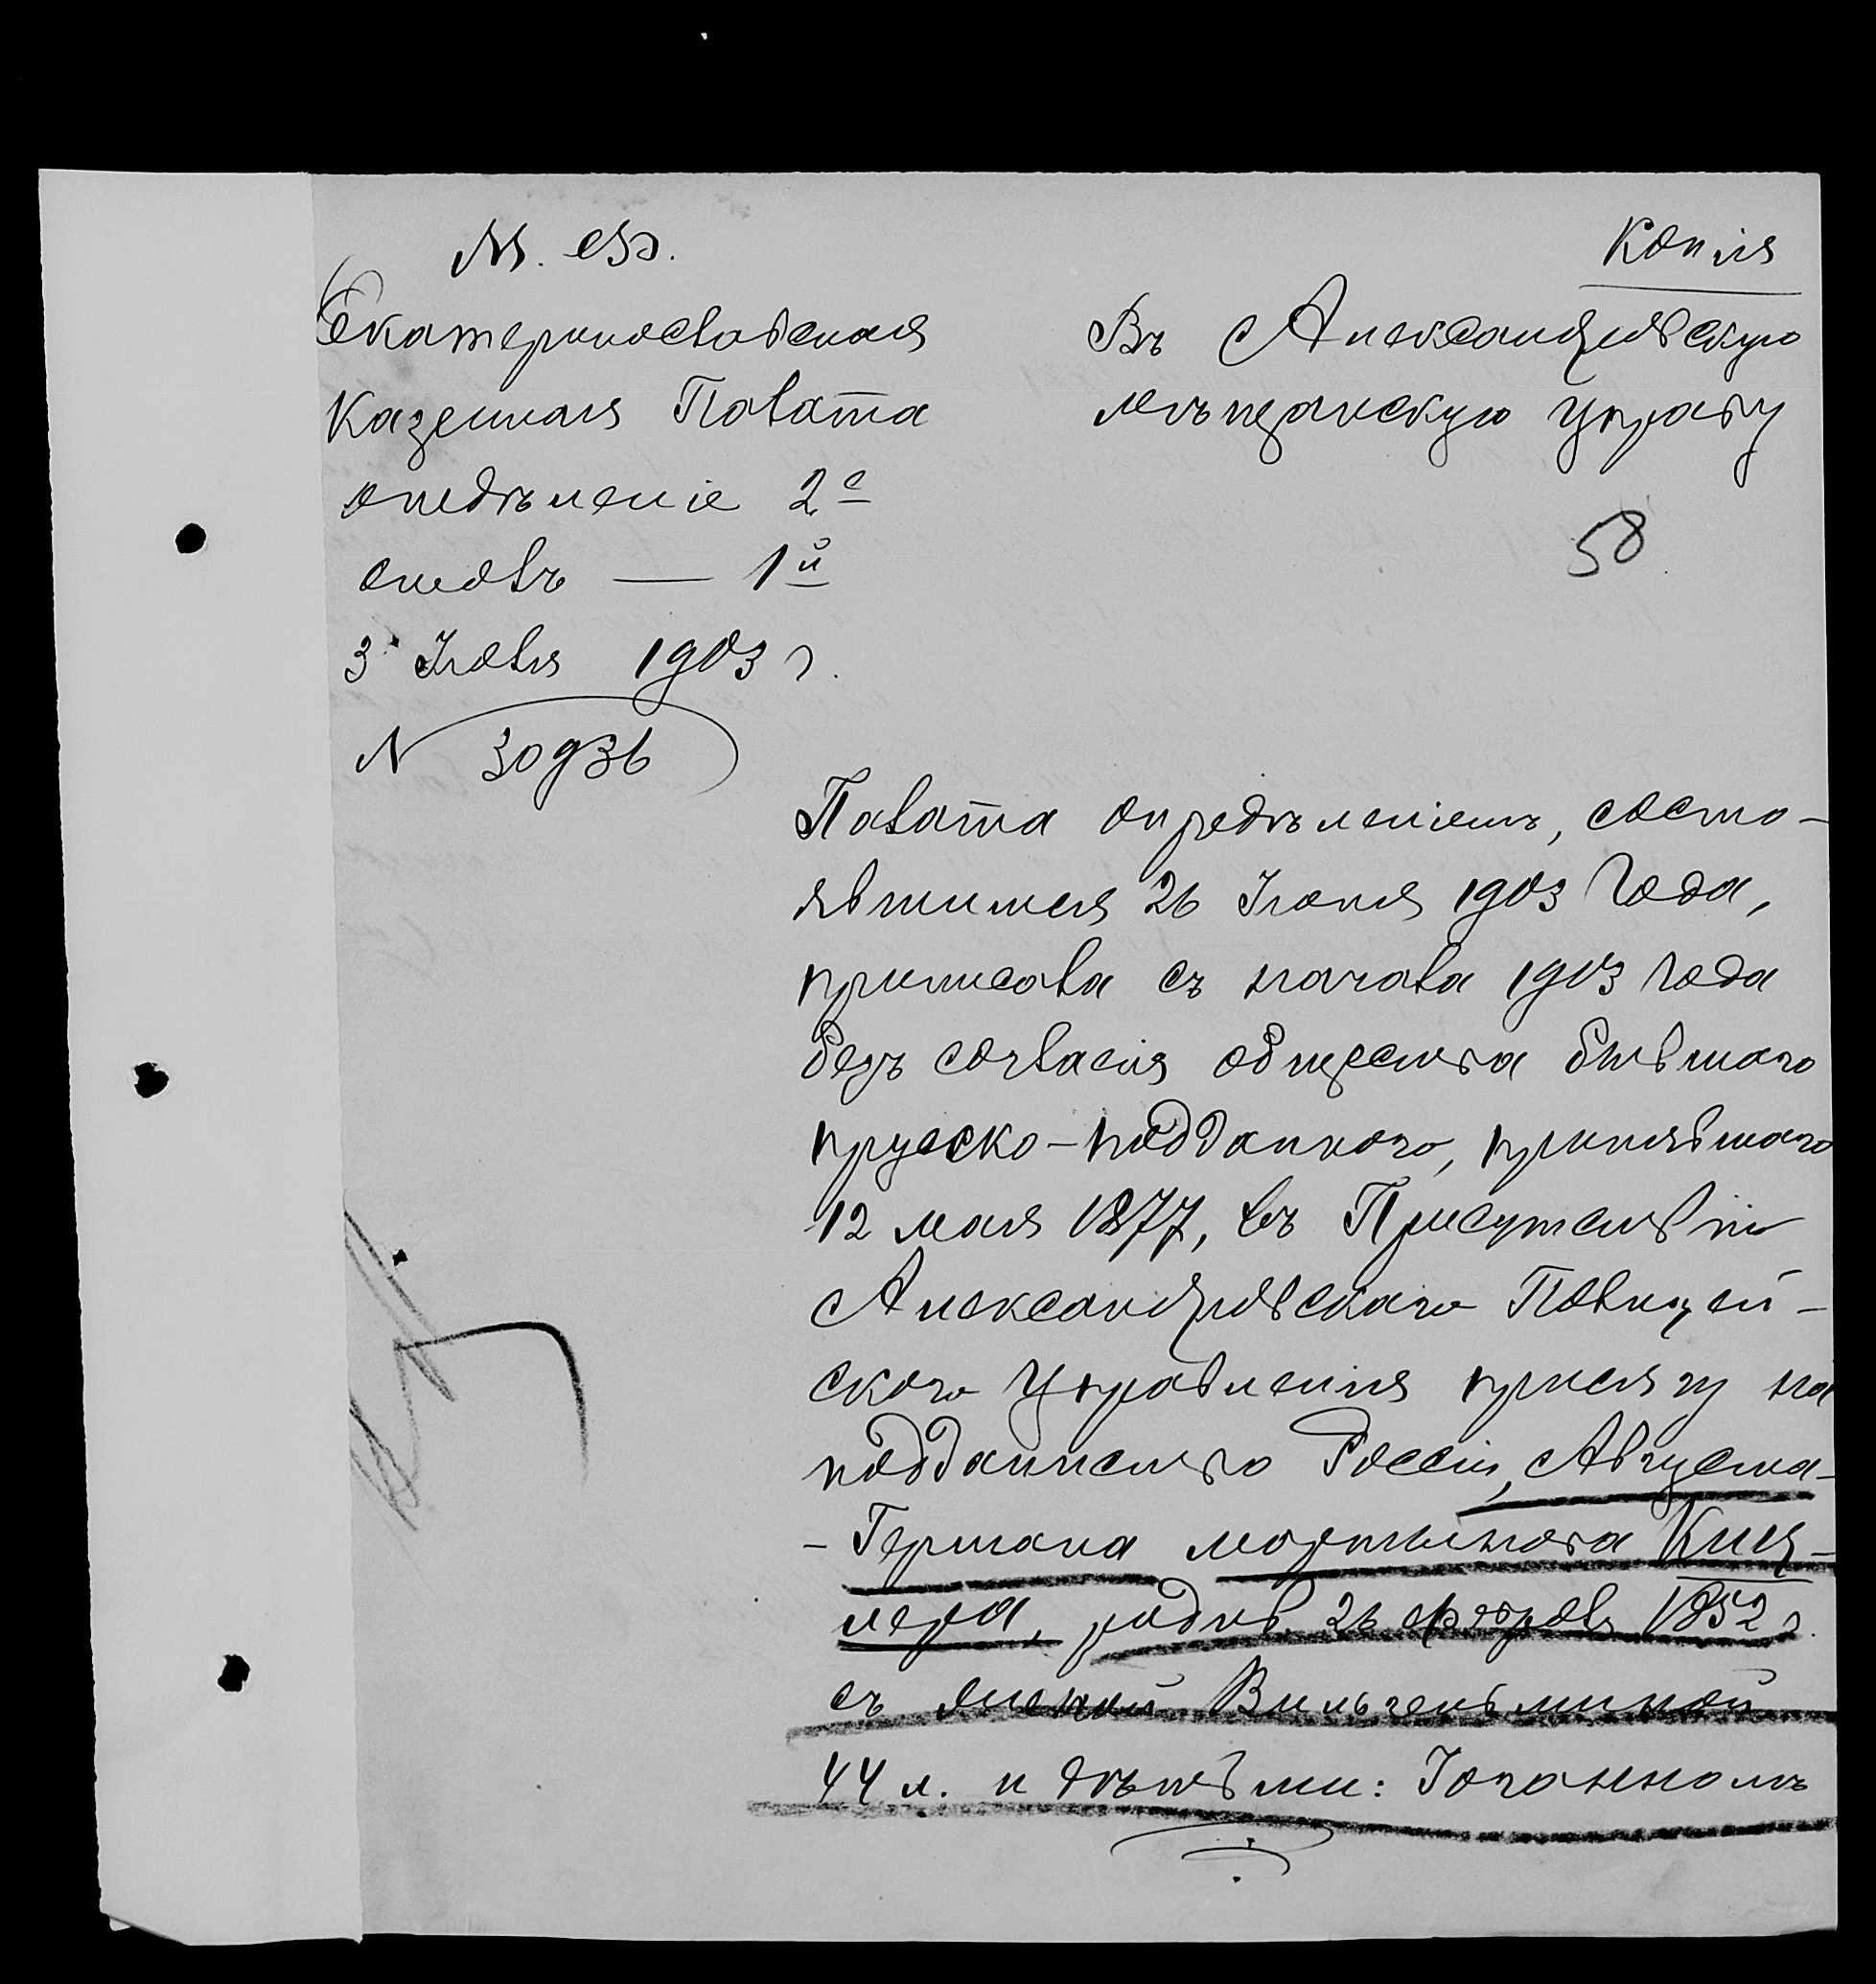 М. Ф.
Копія
Екатеринославская
Казенная Палата
отдѣленіе 2е
столъ — 1й
3 Іюля 1903 г.
N 30936
Въ Александровскую
мѣщанскую управу
58
Палата опредѣленіемъ, состо-
явшимся 26 Іюня 1903 Года,
приписала съ начала 1903 Года
безъ согласія общества бывшаго
прусско-подданного, принявшаго
12 мая 1877, въ Присутствіи
Александровскаго Полицей-
ского Управленія присягу на
подданство Россіи, Августа-
-Германа мартынова Киц-
лера, родив. 26 февраля 1852 г.
съ женой Вильгельминой
44 л. и дѣтьми: Іоганномъ